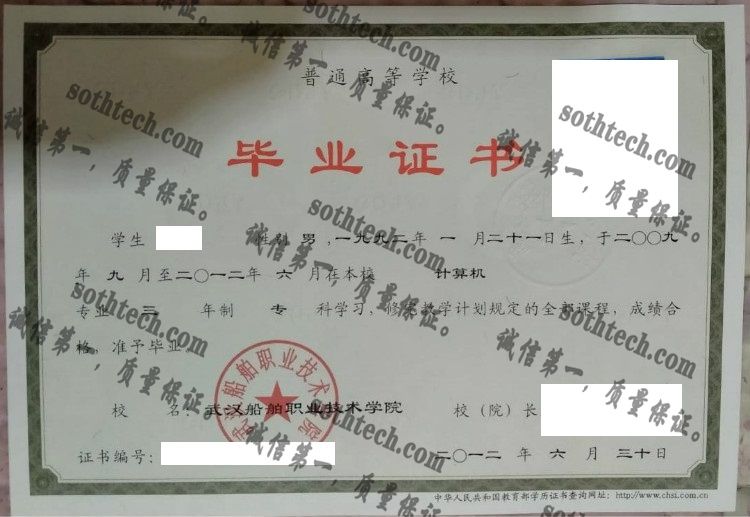 普通高等学校
毕业证书
学生 性别 男 ,一九九二年 一 月二十一日生, 于二〇〇九
年 九 月至二〇一二年 六 月在本校 计算机
专业 三 年制 专 科学习, 修完教学计划规定的全部课程, 成绩合
格, 准予毕业
校 名: 武汉船舶职业技术学院 校(院)长
证书编号: 二〇一二 年 六 月 三十日
中华人民共和国教育部学历证书查询网址: http://www.chsi.com.cn
武汉船舶职业技术学院
sothtech.com
诚信第一,质量保证。
sothtech.com
诚信第一,质量保证。
sothtech.com
诚信第一,质量保证。
sothtech.com
诚信第一,质量保证。
sothtech.com
诚信第一,质量保证。
sothtech.com
诚信第一,质量保证。
sothtech.com
诚信第一,质量保证。
sothtech.com
诚信第一,质量保证。